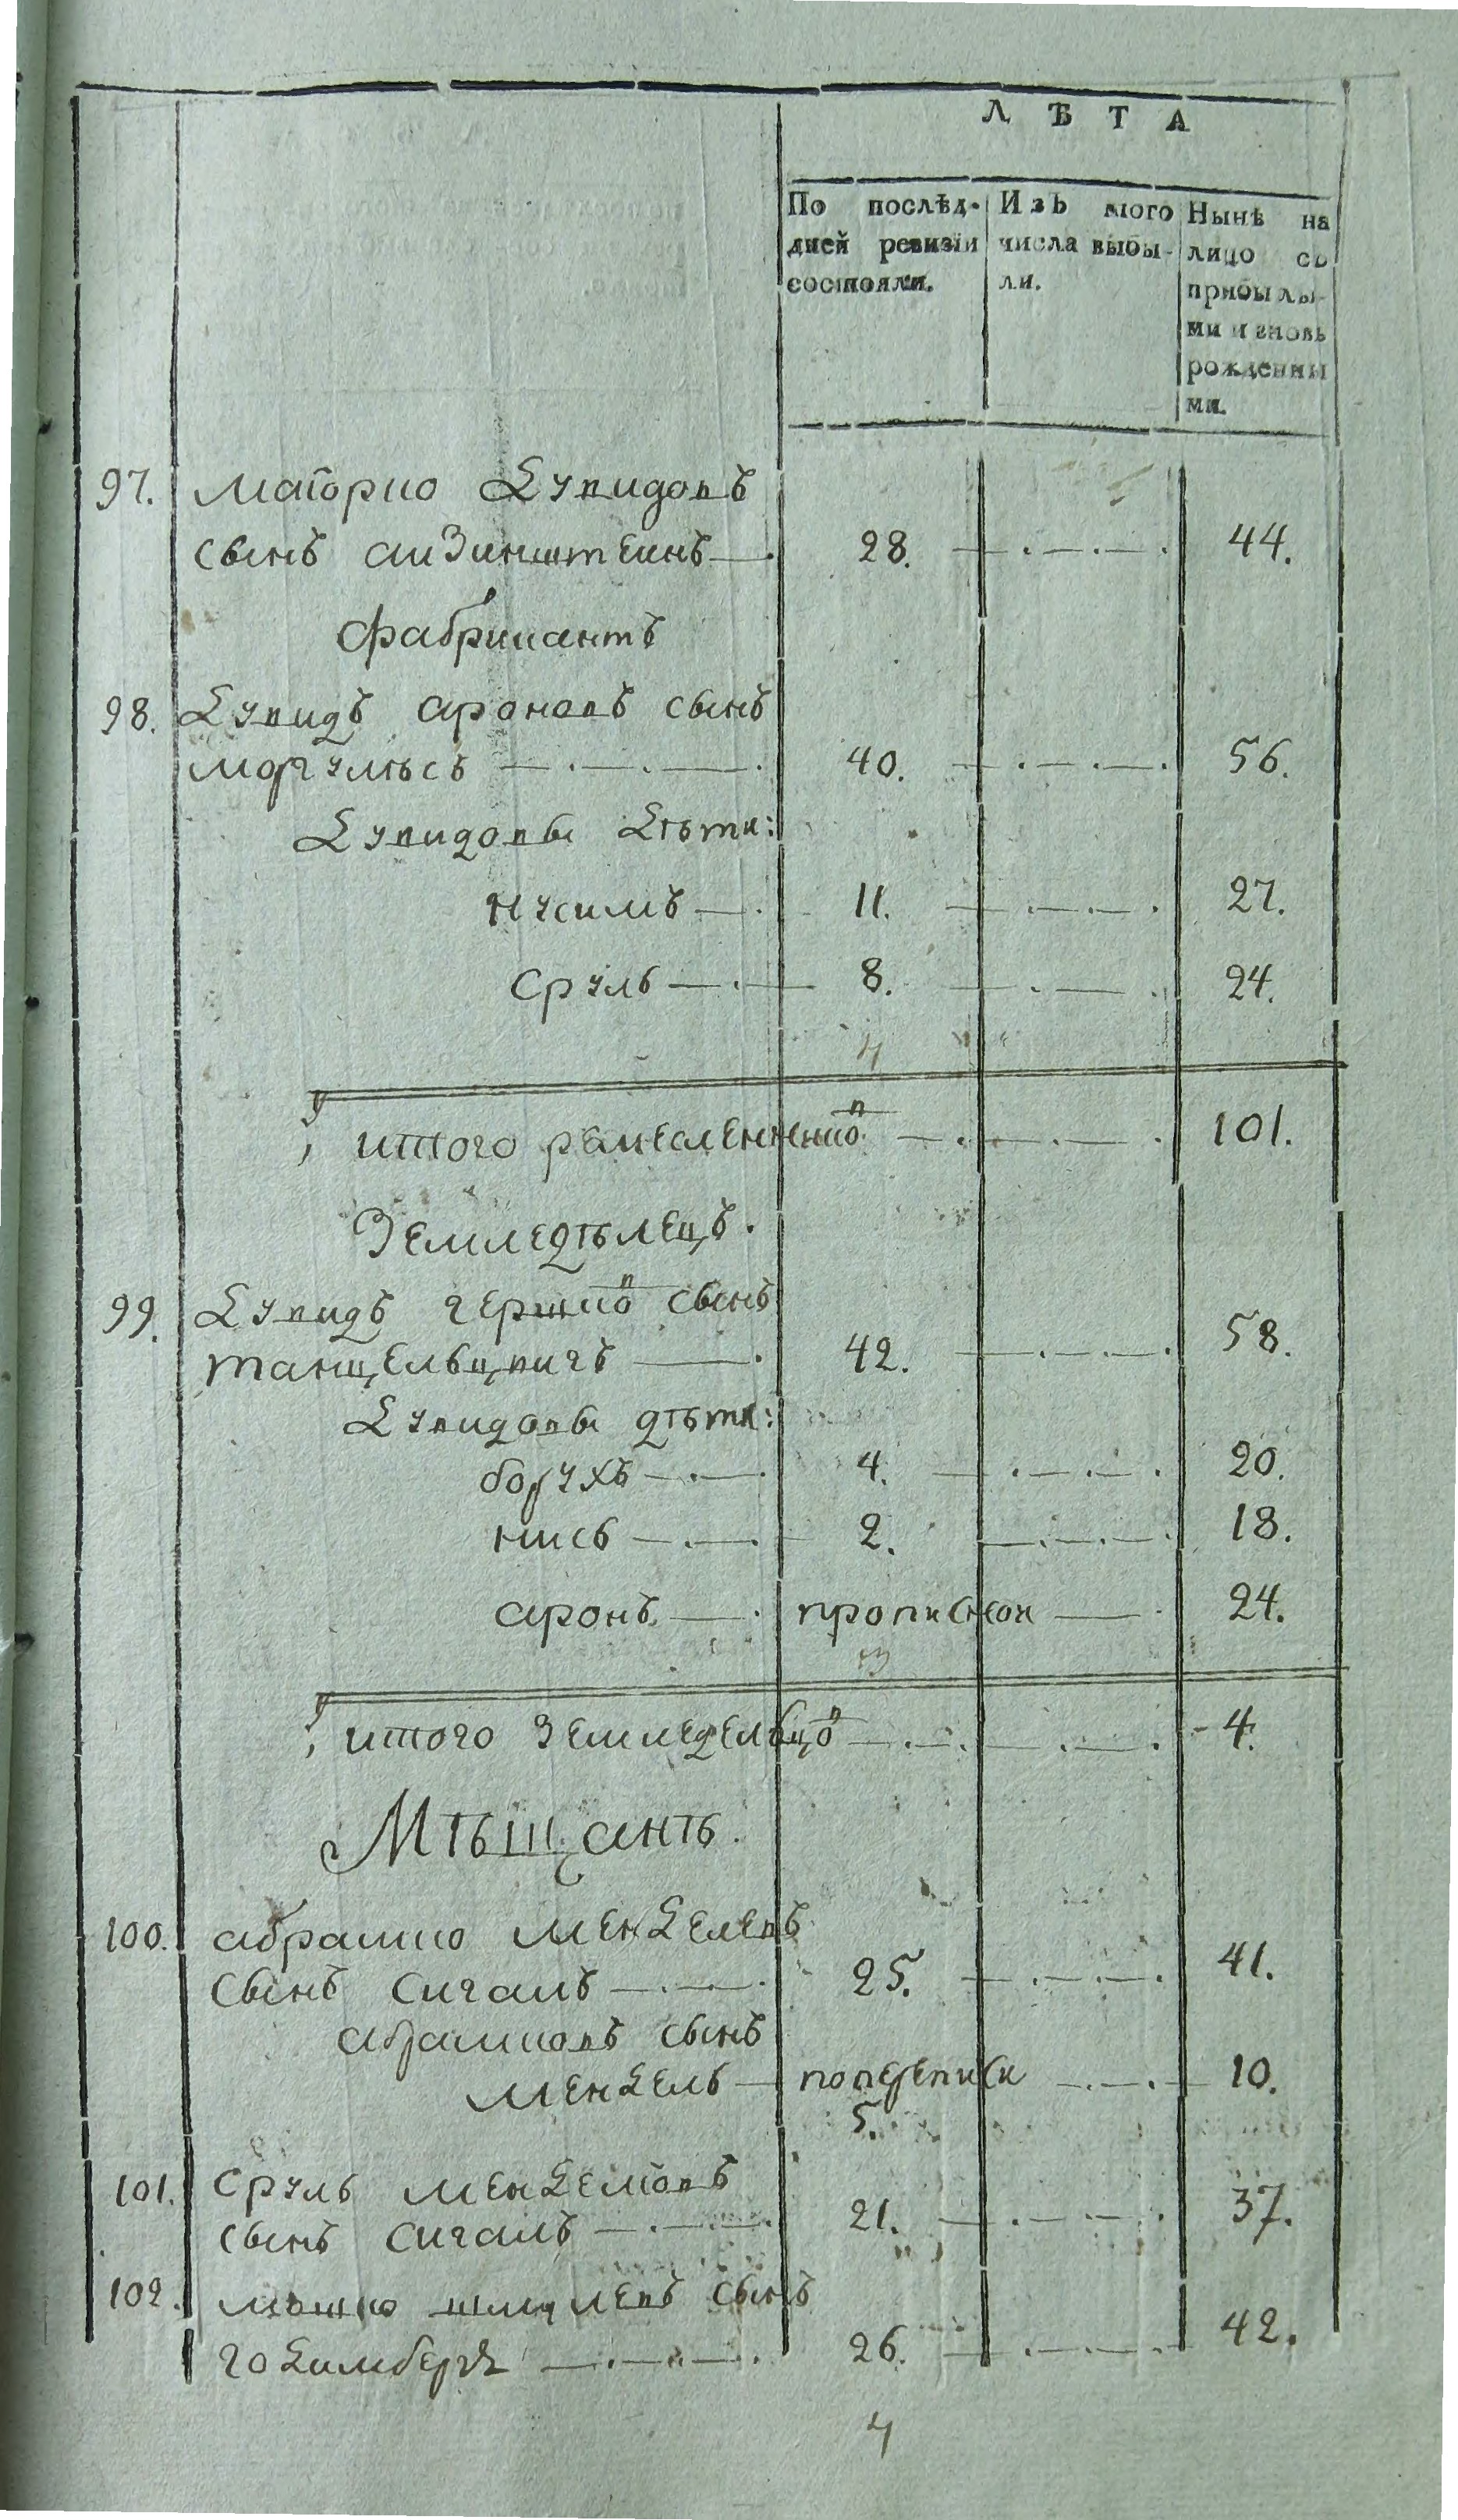 ЛѢТА
По послѣд-
дней ревизіи
состояли.
Изъ того
числа выбы-
ли.
Нынѣ на
лицо съ
прибылы-
ми и вновь
рожденны
ми.
97. Маіорко Дувидовъ
сынъ аизинштеинъ 28. 44.
фабрикантъ
98. Дувидъ ароновъ сынъ
моргульсъ 40. 56.
Дувидовы Дѣти:
нусимъ 11. 27.
Сруль 8. 24.
4
итого ремесленниковъ 101.
Земледѣлецъ.
99. Дувидъ гершковъ сынъ
танцельцвигъ 42. 58.
Дувидовы дѣти:
борухъ 4. 20.
нись 2. 18.
аронъ прописнои 24.
3
итого земледельцовъ 4.
Мѣщанѣ.
100. абрамко Менделевъ
сынъ Сигалъ 25. 41.
абрамковъ сынъ
Мендель попереписи 10.
5.
101. Сруль Менделіовъ
сынъ Сигалъ 21. 37.
102. мошко шмулевъ сынъ
голдимберъ 26. 42.
4